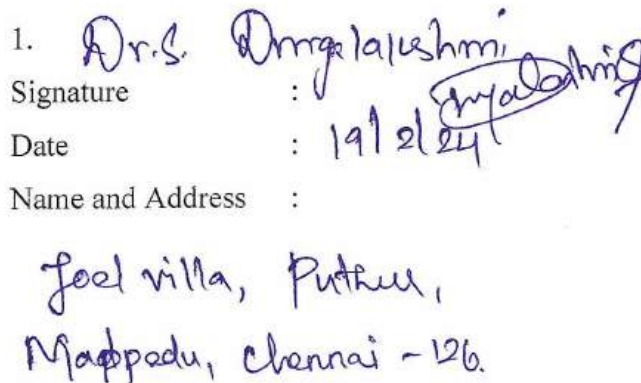 1. Dr. S. Durgalakshmi
Signature :
Date : 19/2/24
Name and Address :
Joel villa, Puthur,
Mappedu, Chennai - 126.